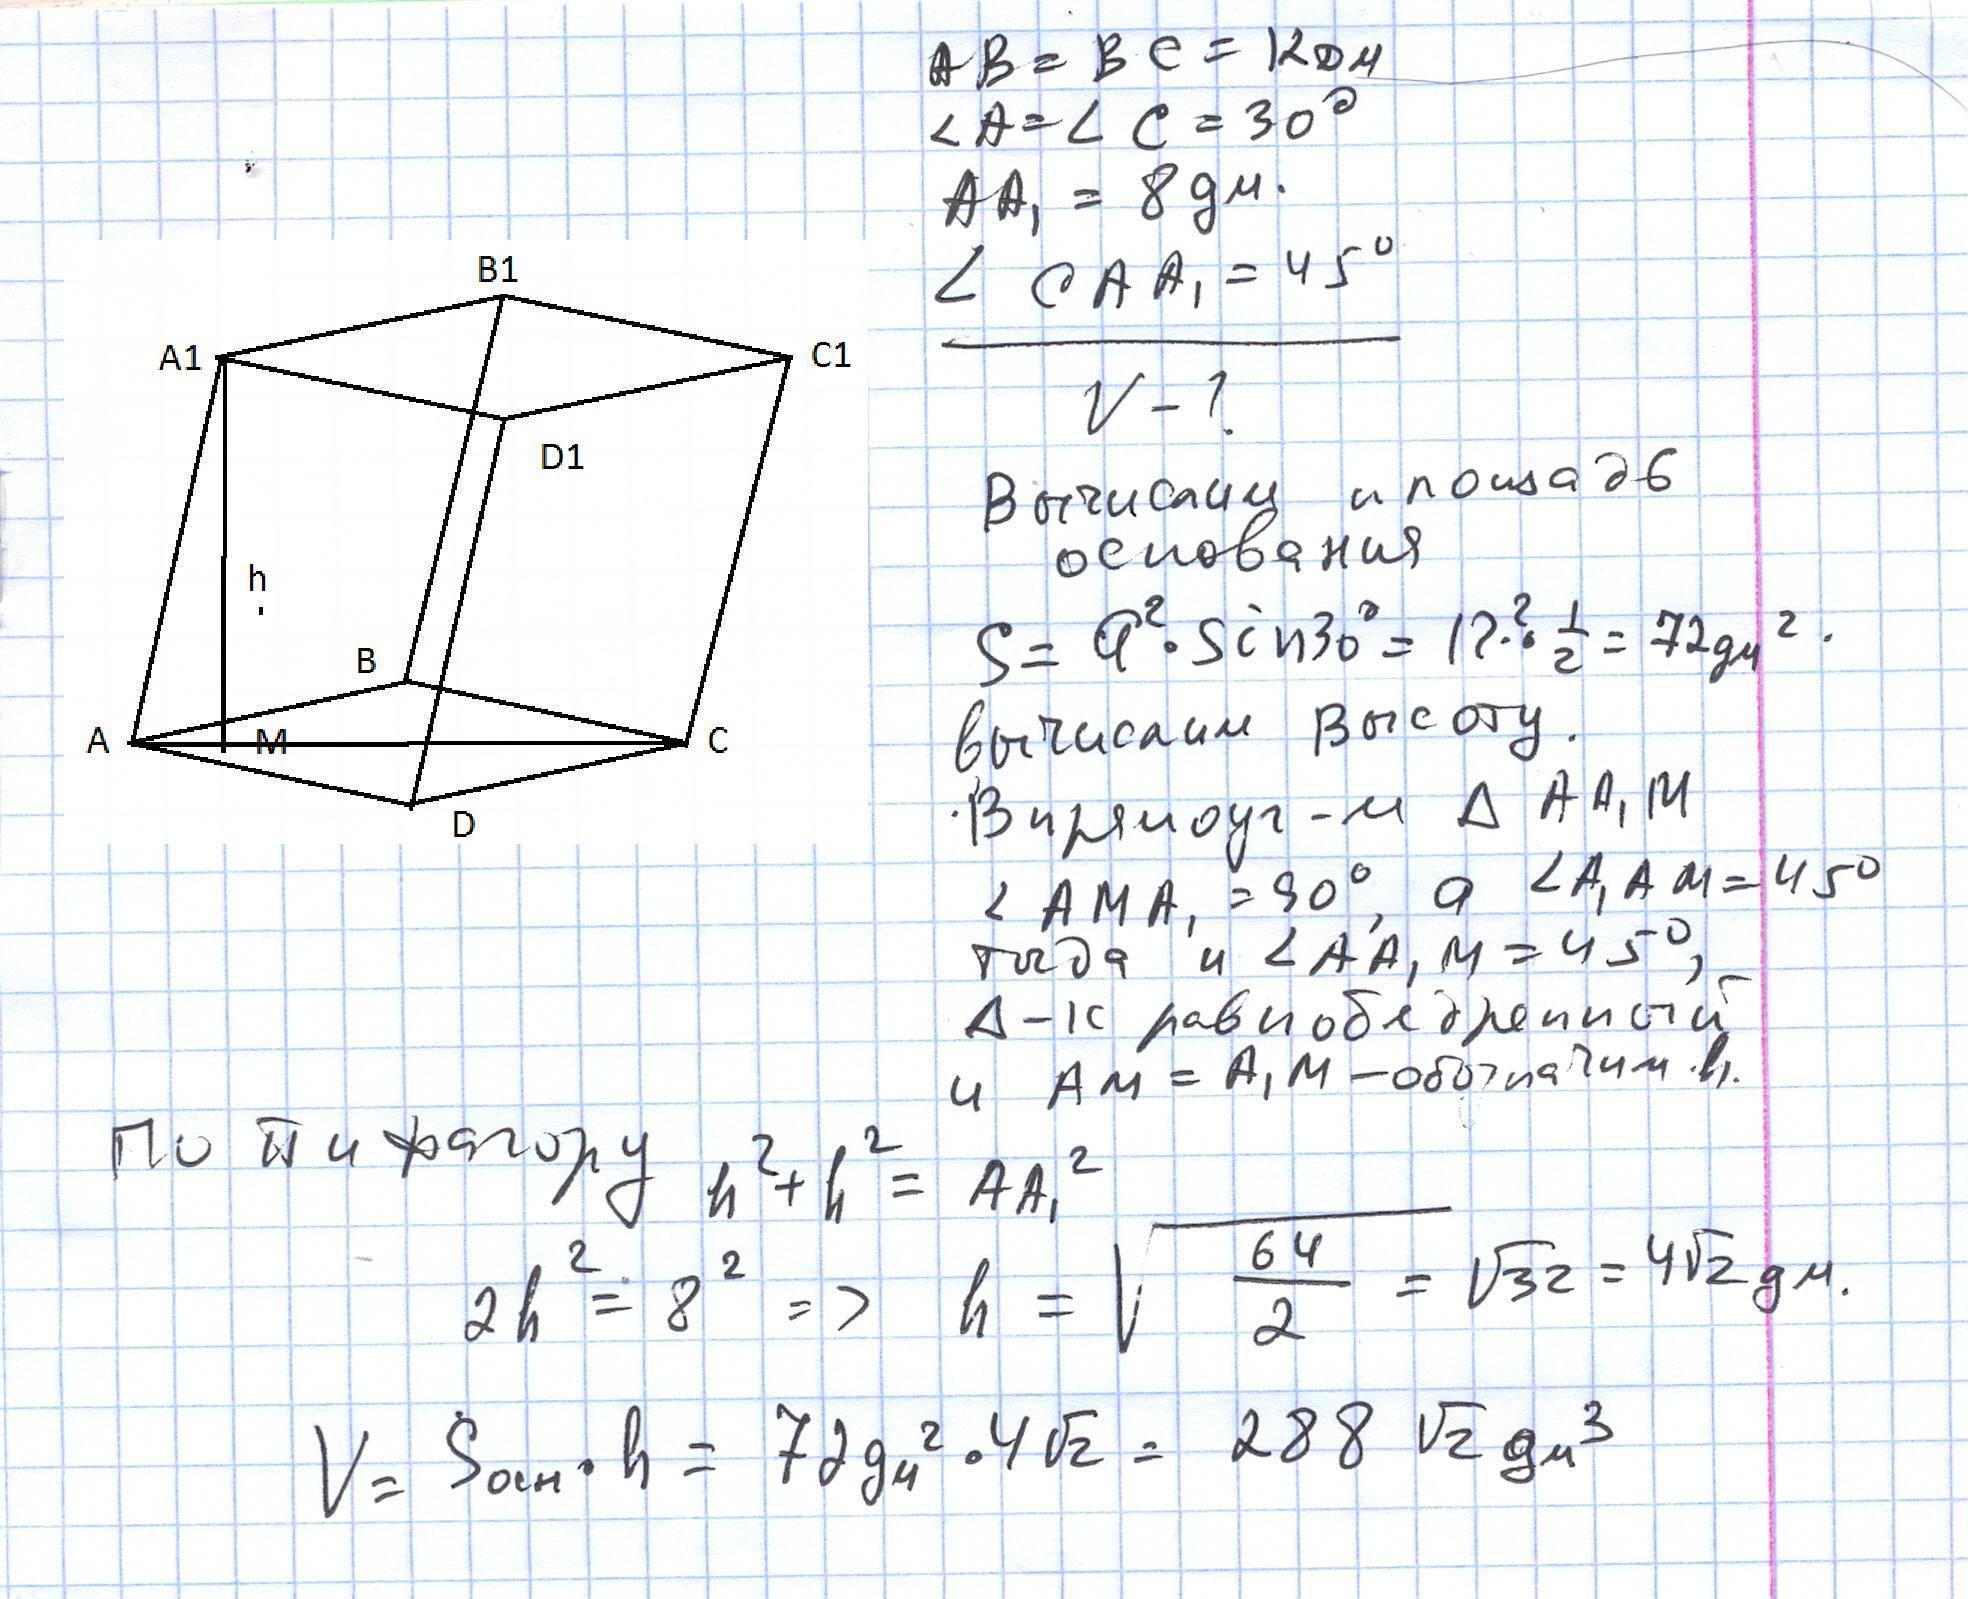 AB = BC = 12дм
∠A = ∠C = 30°
AA₁ = 8 дм.
∠ CAA₁ = 45°
V - ?
B1
A1
C1
D1
h
B
A
M
C
D
Вычислим площадь
основания
S = a² · Sin30° = 12² · 1/2 = 72дм².
вычислим высоту.
В прямоуг-м Δ AA₁M
∠AMA₁ = 90°, а ∠A₁AM = 45°
тогда и ∠AA₁M = 45°,
Δ-к равнобедренный
и AM = A₁M – обозначим h.
По Пифагору h² + h² = AA₁²
2h² = 8² => h = √(64/2) = √32 = 4√2 дм.
V = Sосн · h = 72дм² · 4√2 = 288 √2 дм³